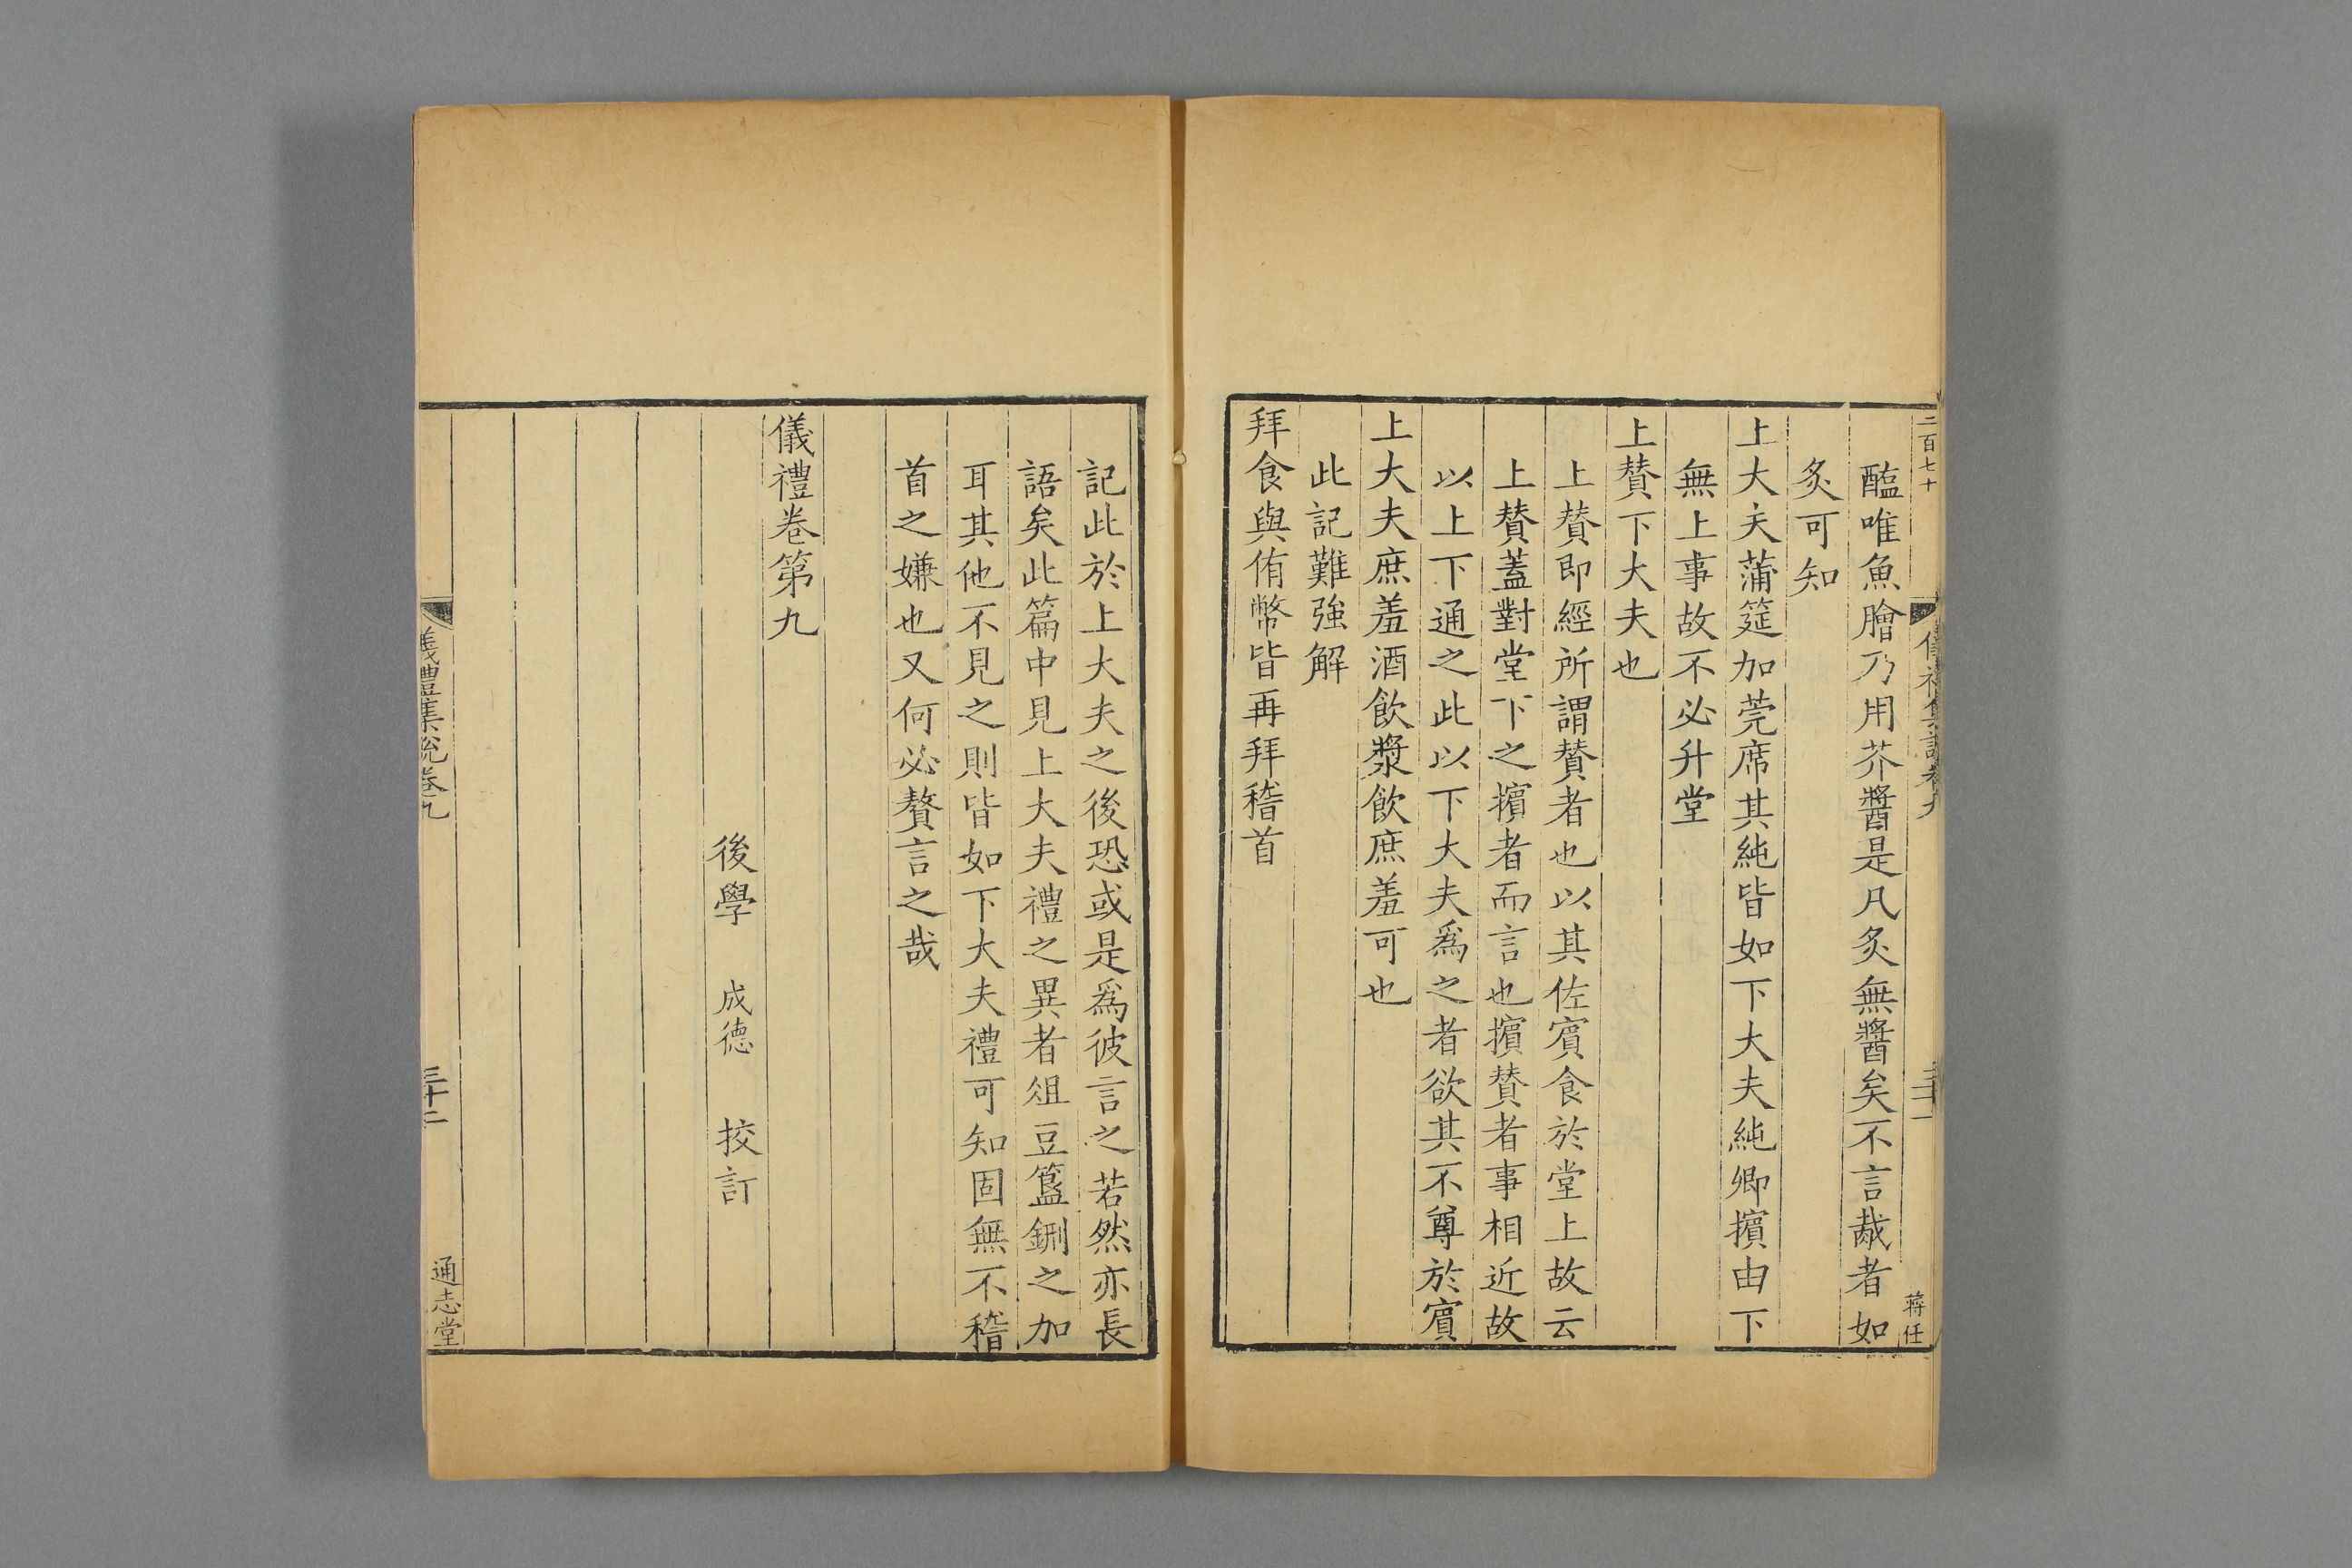 二百七十
儀禮集說卷九
三十一
蔣任
醢唯魚膾乃用芥醬是凡炙無醬矣不言胾者如
炙可知
上大夫蒲筵加莞席其純皆如下大夫純卿擯由下
無上事故不必升堂
上贊下大夫也
上贊即經所謂贊者也以其佐賓食於堂上故云
上贊蓋對堂下之擯者而言也擯贊者事相近故
以上下通之此以下大夫爲之者欲其不尊於賓
上大夫庶羞酒飲漿飲庶羞可也
此記難強解
拜食與侑幣皆再拜稽首
記此於上大夫之後恐或是爲彼言之若然亦長
語矣此篇中見上大夫禮之異者俎豆簋鉶之加
耳其他不見之則皆如下大夫禮可知固無不稽
首之嫌也又何必贅言之哉
儀禮卷第九
後學 成德 挍訂
儀禮集說卷九
三十二
通志堂